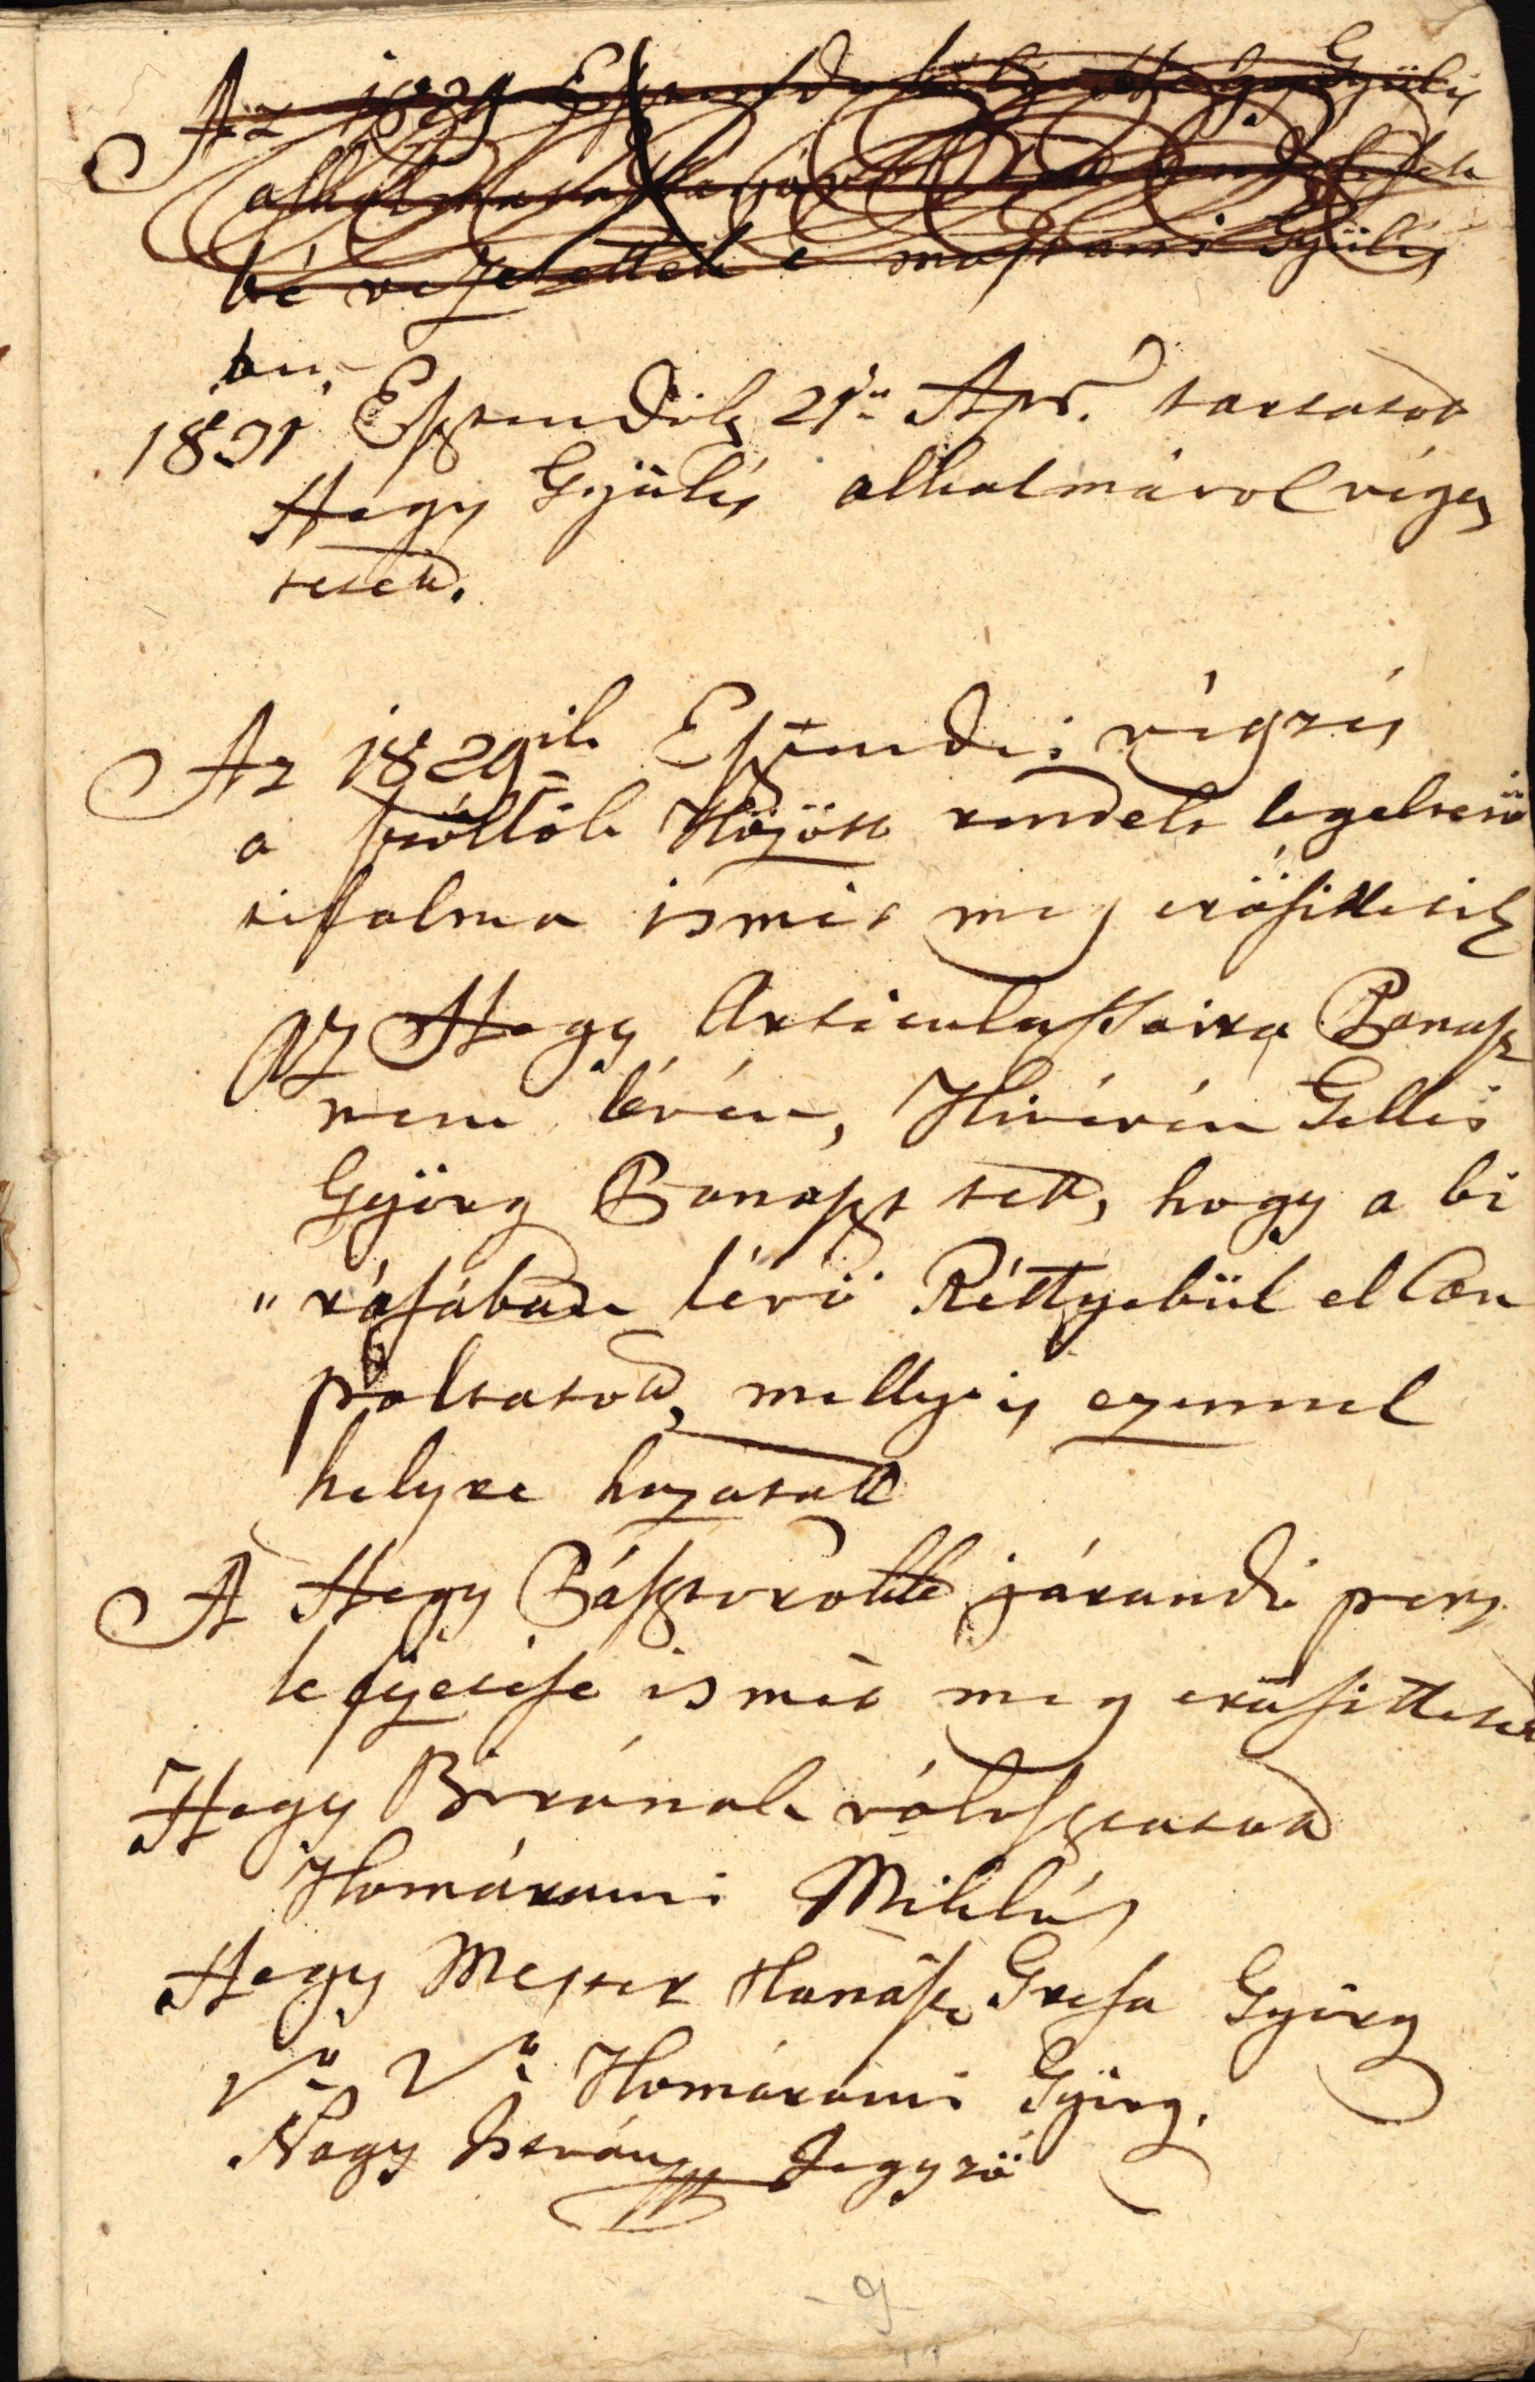 Az 1829 Esztendő Hegy Gyülés
alkalmatosságával
bé vezetettek a mostani Gyülés
ben,
1831 Esztendök 21ik Apr. tartatott
Hegy Gyülés alkalmával végez
tetett.
Az 1829ik Esztendei végzés
a szőllők Között rendelt legeltesö
tilalma ismét meg erősittetik
Az Hegy Articulussaira Panasz
nem lévén, Kivévén Gellei
Györg Panaszt tett, hogy a bi
"rásában lévő Réttyebül el Can
poltatott, melly is ezennel
helyre hozatott
A Hegy Pásztorokk járandó perz
le fizetése ismét meg erősittetett
Hegy Birának választatott
Komáromi Miklós
Hegy Mester Kanász Gresa Györg
V. V. Komáromi Györg.
Nagy István Jegyző
9